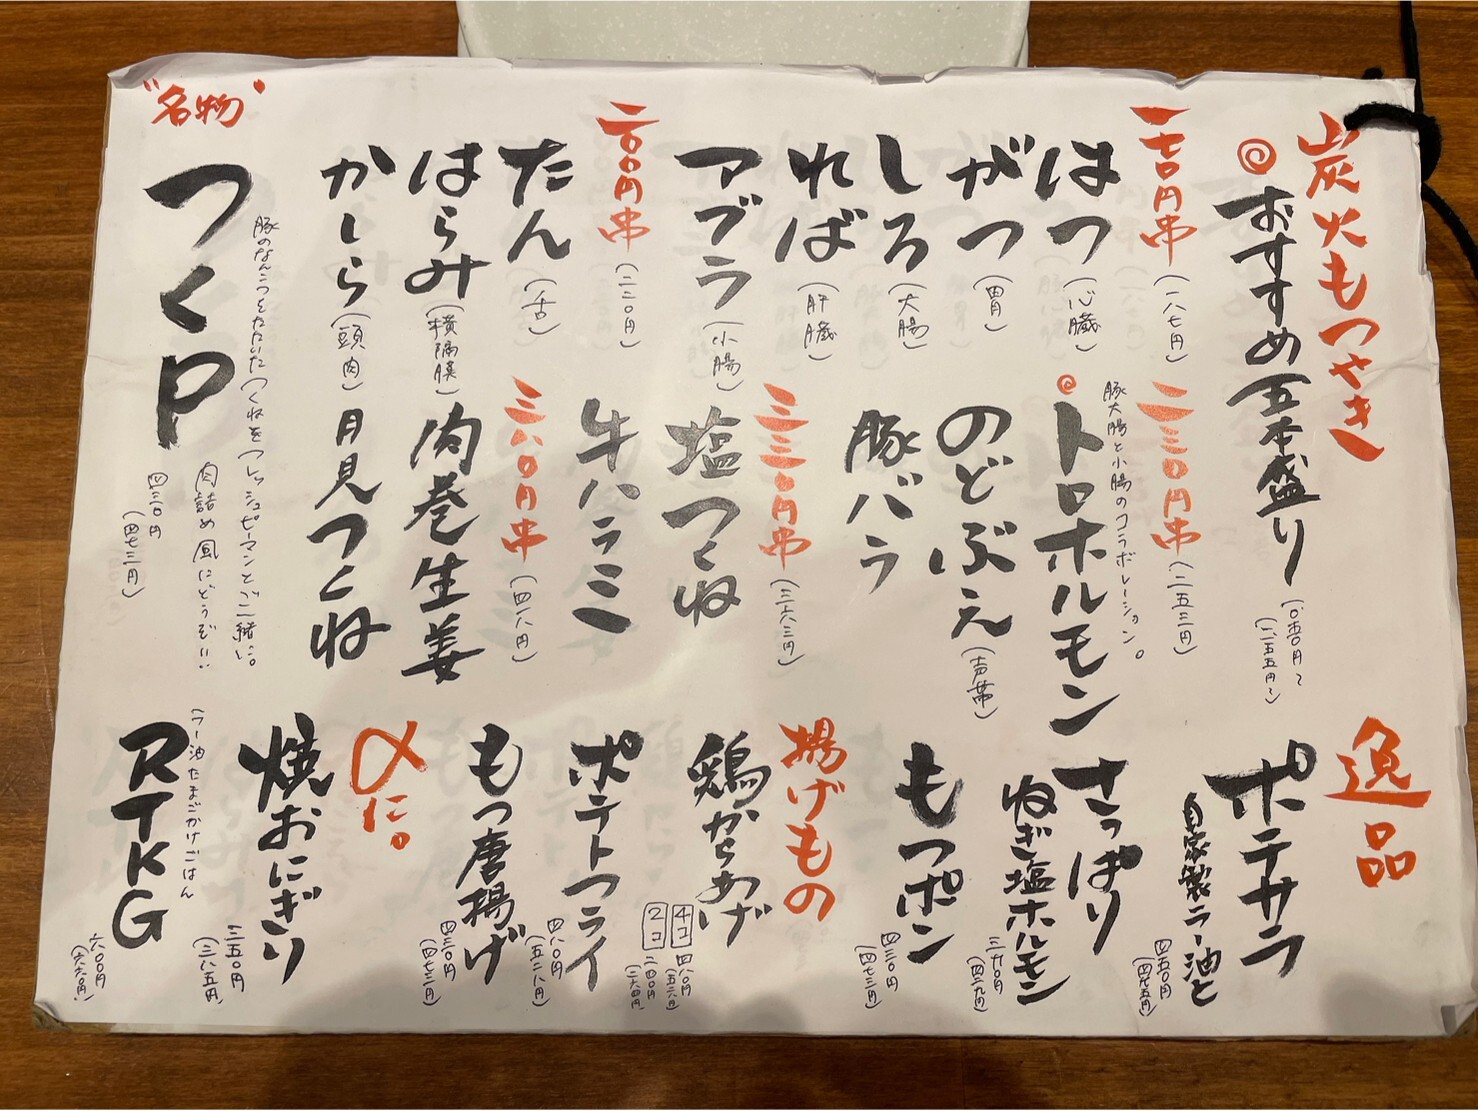 炭火もつやき
おすすめ五本盛り
一、〇五〇円〜
(一、一五五円〜)
一七〇円串
(一八七円)
はつ(心臓)
がつ(胃)
しろ(大腸)
れば(肝臓)
アブラ(小腸)
二〇〇円串
(二二〇円)
たん(舌)
はらみ(横隔膜)
かしら(頭肉)
二三〇円串
(二五三円)
豚大腸と小腸のコラボレーション。
トロホルモン
のどぶえ(声帯)
豚バラ
三三〇円串
(三六三円)
塩つくね
牛ハラミ
三八〇円串
(四一八円)
肉巻生姜
月見つくね
"名物"
つくP
豚のなんこつをたたいたつくねをフレッシュピーマンとご一緒に。
肉詰め風にどうぞ!!
四三〇円
(四七三円)
逸品
ポテサラ
自家製ラー油と
四五〇円
(四九五円)
さっぱり
ねぎ塩ホルモン
三九〇円
(四二九円)
もつポン
四三〇円
(四七三円)
揚げもの
鶏からあげ
4コ 四八〇円
(五二八円)
2コ 二四〇円
(二六四円)
ポテトフライ
四八〇円
(五二八円)
もつ唐揚げ
四三〇円
(四七三円)
〆に。
焼おにぎり
三五〇円
(三八五円)
(ラー油たまごかけごはん
RTKG
六〇〇円
(六六〇円)